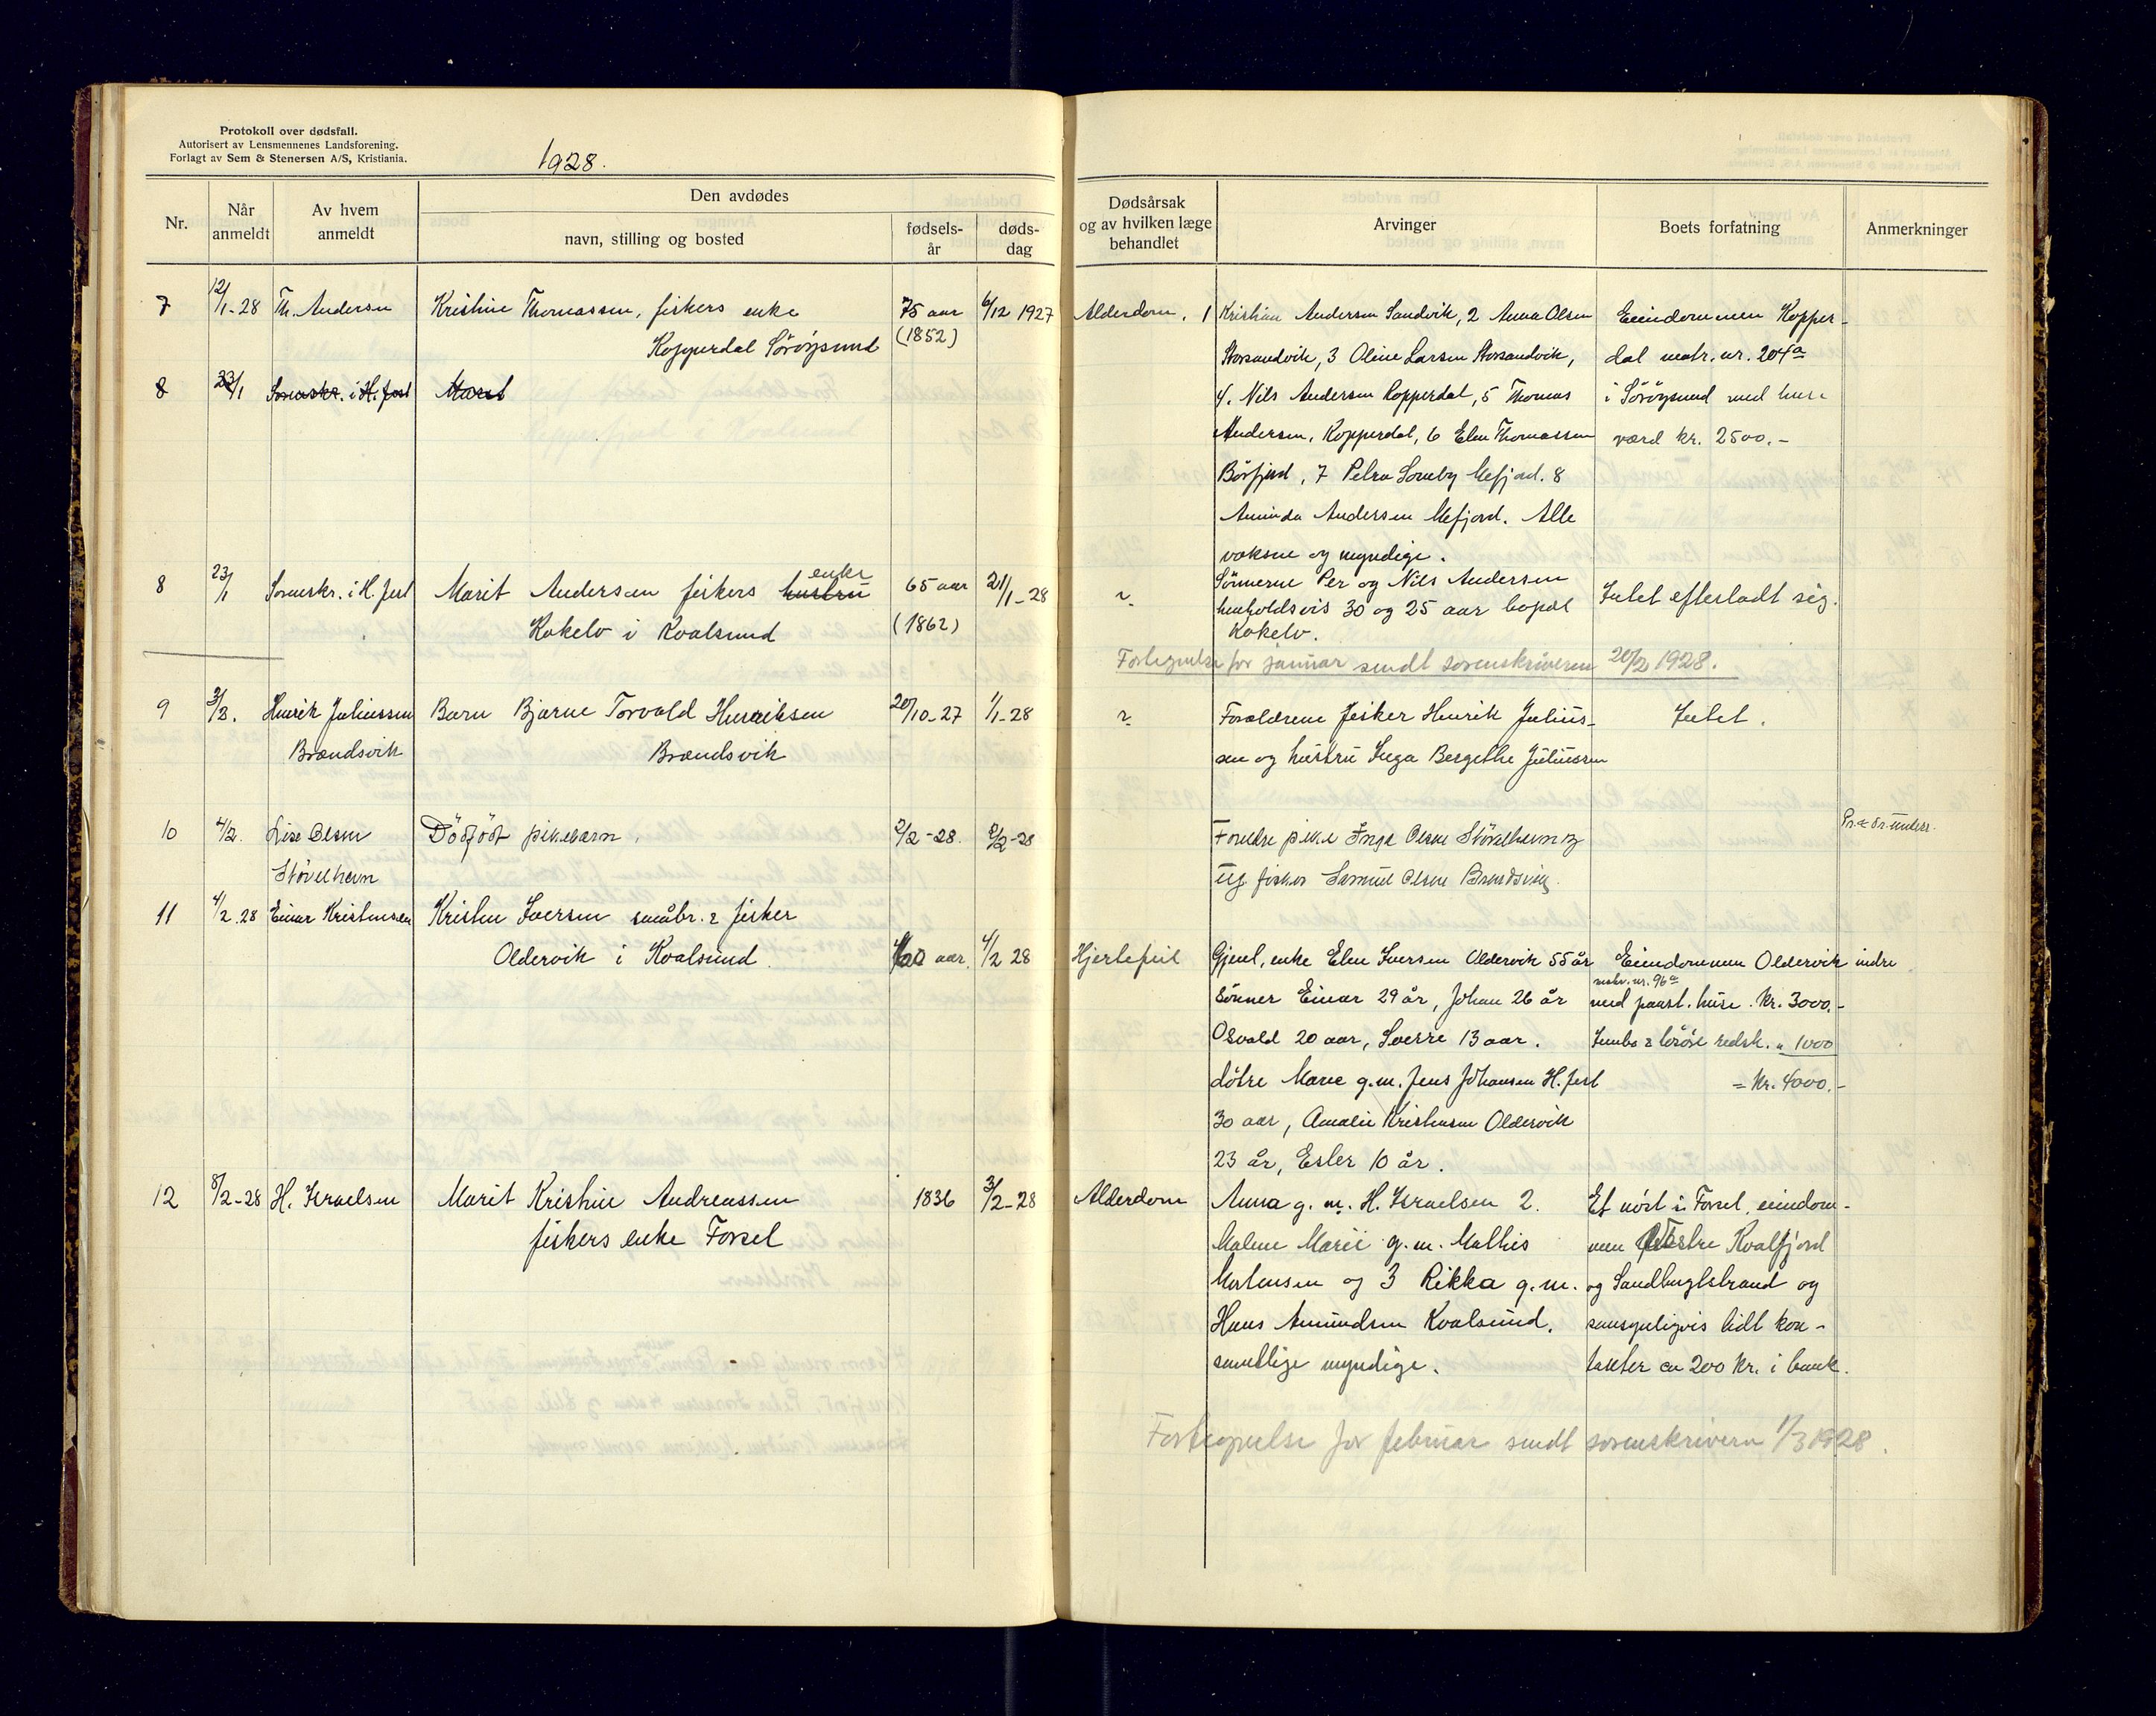 Protokoll over dødsfall.
Autorisert av Lensmennenes Landsforening.
Forlagt av Sem & Stenersen A/S, Kristiania.
1928.
Nr.
Når anmeldt
Av hvem anmeldt
Den avdødes
navn, stilling og bosted
fødsels-år
døds-dag
Dødsårsak og av hvilken læge behandlet
Arvinger
Boets forfatning
Anmerkninger
7 12/1-28 Th. Andersen Kristine Thomassen, fiskers enke 75 aar 6/12 1927 Alderdom. 1 Kristian Andersen Sandvik, 2 Anna Olsen Eiendommen Kopper-
Kopperdal Söröysund (1852) Storsandvik, 3 Oline Larsen Storsandvik, dal matr. nr. 204a
8 23/1 Sorenskr. i H.fest Marit 4. Nils Andersen Kopperdal, 5 Thomas i Söröysund med huse
Andersen, Kopperdal, 6 Elen Thomassen værd kr. 2500.-
Börfjord, 7 Petra Mefjord. 8
Andersen Mefjord. Alle
voksne og myndige.
8 23/1 Sorenskr. i H.fest Marit Andersen fiskers hustru enke 65 aar 21/1-28 ? Sönnerne Per og Nils Andersen Intet efterladt sig.
Kokelv i Kvalsund (1862) henholdsvis 30 og 25 aar bopæl
Kokelv.
Fortegnelse for januar sendt sorenskriveren 20/2 1928.
9 3/2. Henrik Juliussen Barn Bjarne Torvald Henriksen 20/10-27 1/1-28 ? Forældrene fisker Henrik Julius- Intet.
Brændsvik Brændsvik sen og hustru Inga Bergethe Juliussen
10 4/2. Lise Olsen Dödfödt pikebarn. 2/2-28. 2/2-28 Foreldre pike Inga Olsen Störelhavn og
Störelhavn ug. fisker Samuel Olsen Brendsvik.
11 4/2.28 Einar Kristensen Kristen Iversen småbr. & fisker
Oldervik i Kvalsund. 60 aar. 4/2 28 Hjertefeil Gjenl. enke Elen Iversen Oldervik 55 år Eiendommen Oldervik indre
matr. nr. 96a
sönner Einar 29 år, Johan 26 år med paast. huse. Kr. 3000.-
Osvald 20 aar, Sverre 13 aar. Innbo & lösöre redsk. " 1000
döbre Marie g.m. Jens Johansen H.fest = Kr. 4000.-
30 aar, Amalie Kristensen Oldervik
23 år, Ester 10 år.
12 8/2-28 H. Israelsen Marit Kristine Andreassen 1836 3/2-28 Alderdom Anna g.m. H. Israelsen 2. Et nöst i Forsel, eiendom-
fiskers enke Forsel Malene Marie g.m. Mathis men Vestre Kvalfjord
Mortensen og 3 Rikka g.m. og Sandbugtstrand og
Hans Amundsen Kvalsund. sansynligvis lidt kon-
samtlige myndige. tanter ca 200 kr. i bank.
Fortegnelse for februar sendt sorenskriveren 1/3 1928.